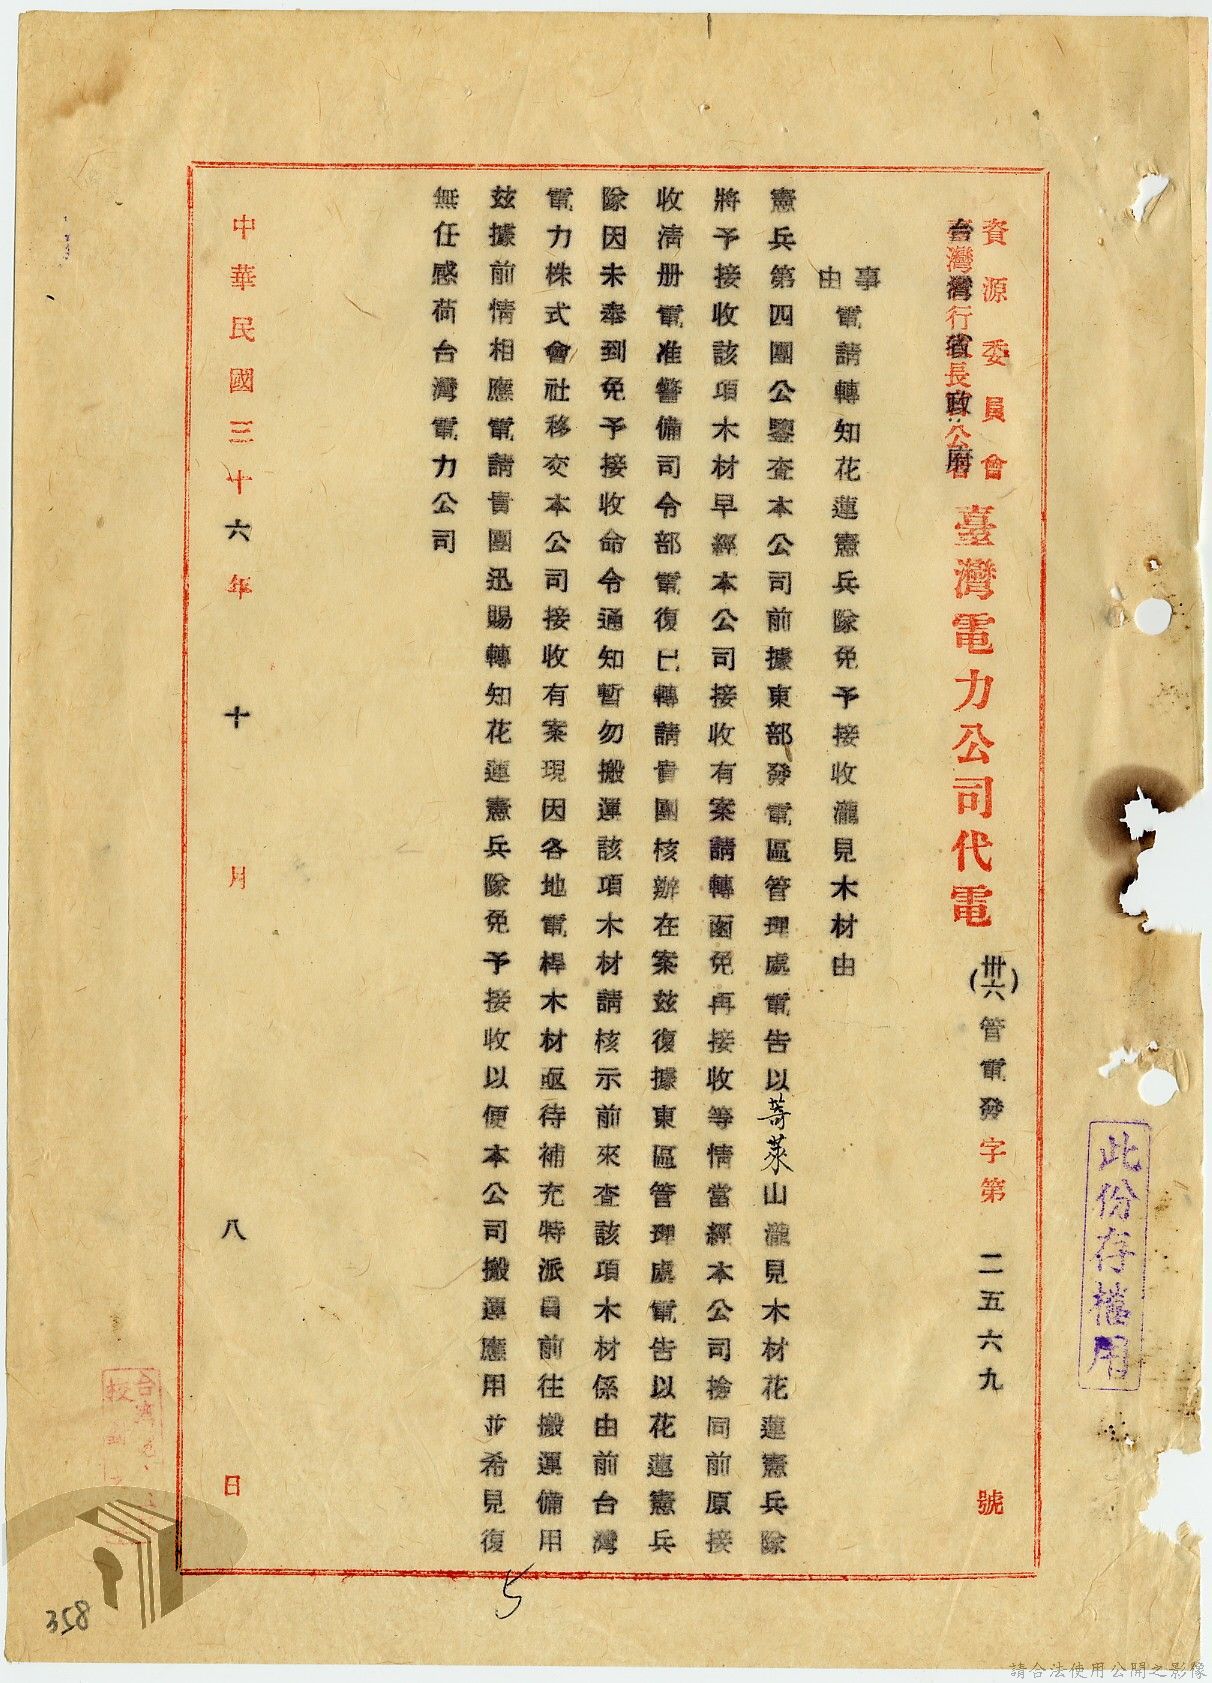 資源委員會
台灣省政府
臺灣電力公司代電
(卅六)管電發字第二五六九號
事由
電請轉知花蓮憲兵隊免予接收瀧見木材由
憲兵第四團公鑒查本公司前據東部發電區管理處電告以蒈萊山瀧見木材花蓮憲兵隊
將予接收該項木材早經本公司接收有案請轉函免再接收等情當經本公司撿同前原接
收清册電准警備司令部電復已轉請貴團核辦在案茲復據東區管理處電告以花蓮憲兵
隊因未奉到免予接收命令通知暫勿搬運該項木材請核示前來查該項木材係由前台灣
電力株式會社移交本公司接收有案現因各地電桿木材亟待補充特派員前往搬運備用
茲據前情相應電請貴團迅賜轉知花蓮憲兵隊免予接收以便本公司搬運應用並希見復
無任感荷台灣電力公司
中華民國三十六年十月八日
此份存檔用
5
358
請合法使用公開之影像